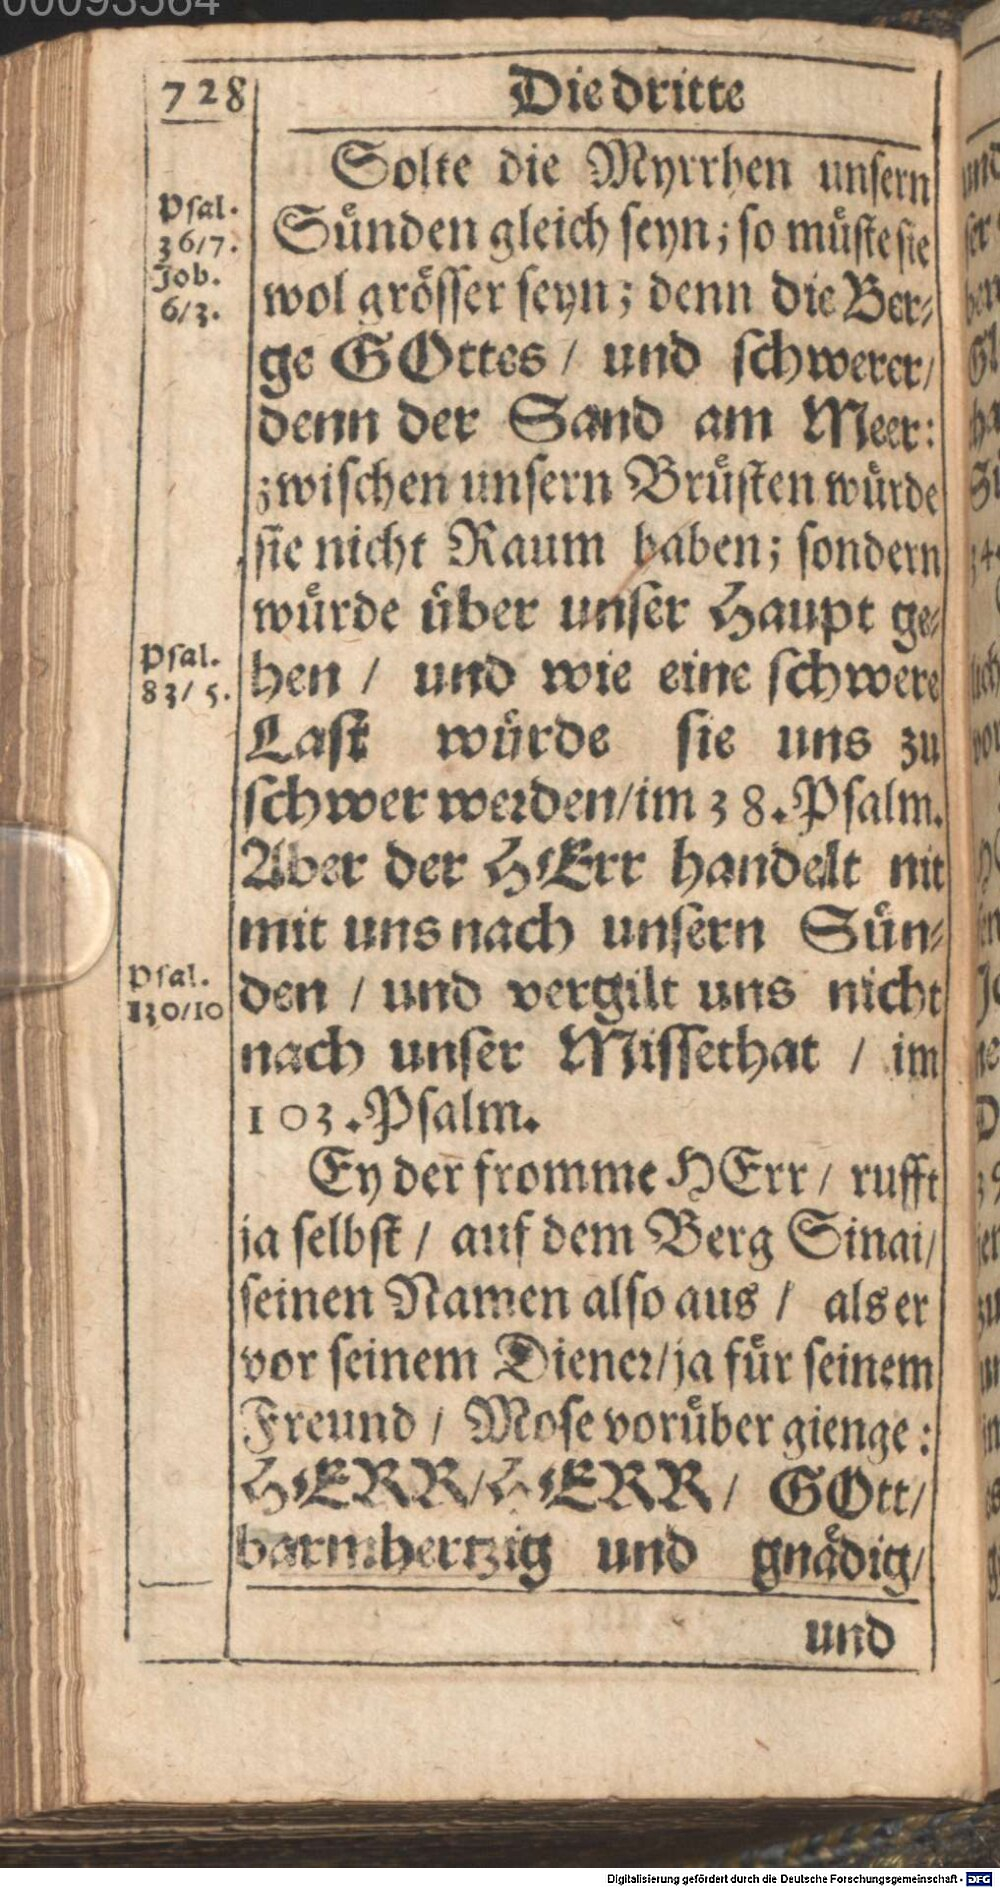 00093564
728
Die dritte
Solte die Myrrhen unsern
Psal.
36/7.
Job.
6/3.
Sůnden gleich seyn; so můste sie
wol grősser seyn; denn die Ber-
ge GOttes / und schwerer/
denn der Sand am Meer:
zwischen unsern Brůsten wůrde
sie nicht Raum haben; sondern
wůrde ůber unser Haupt ge-
Psal.
83/5.
hen / und wie eine schwere
Last wůrde sie uns zu
schwer werden/im 38. Psalm.
Aber der HErr handelt nit
mit uns nach unsern Sůn-
Psal.
130/10
den / und vergilt uns nicht
nach unser Missethat / im
103. Psalm.
Ey der fromme HErr / rufft
ja selbst / auf dem Berg Sinai/
seinen Namen also aus / als er
vor seinem Diener/ja fůr seinem
Freund / Mose vorůber gienge:
HERR/HERR / GOtt/
barmhertzig und gnådig/
und
Digitalisierung gefördert durch die Deutsche Forschungsgemeinschaft - DFG